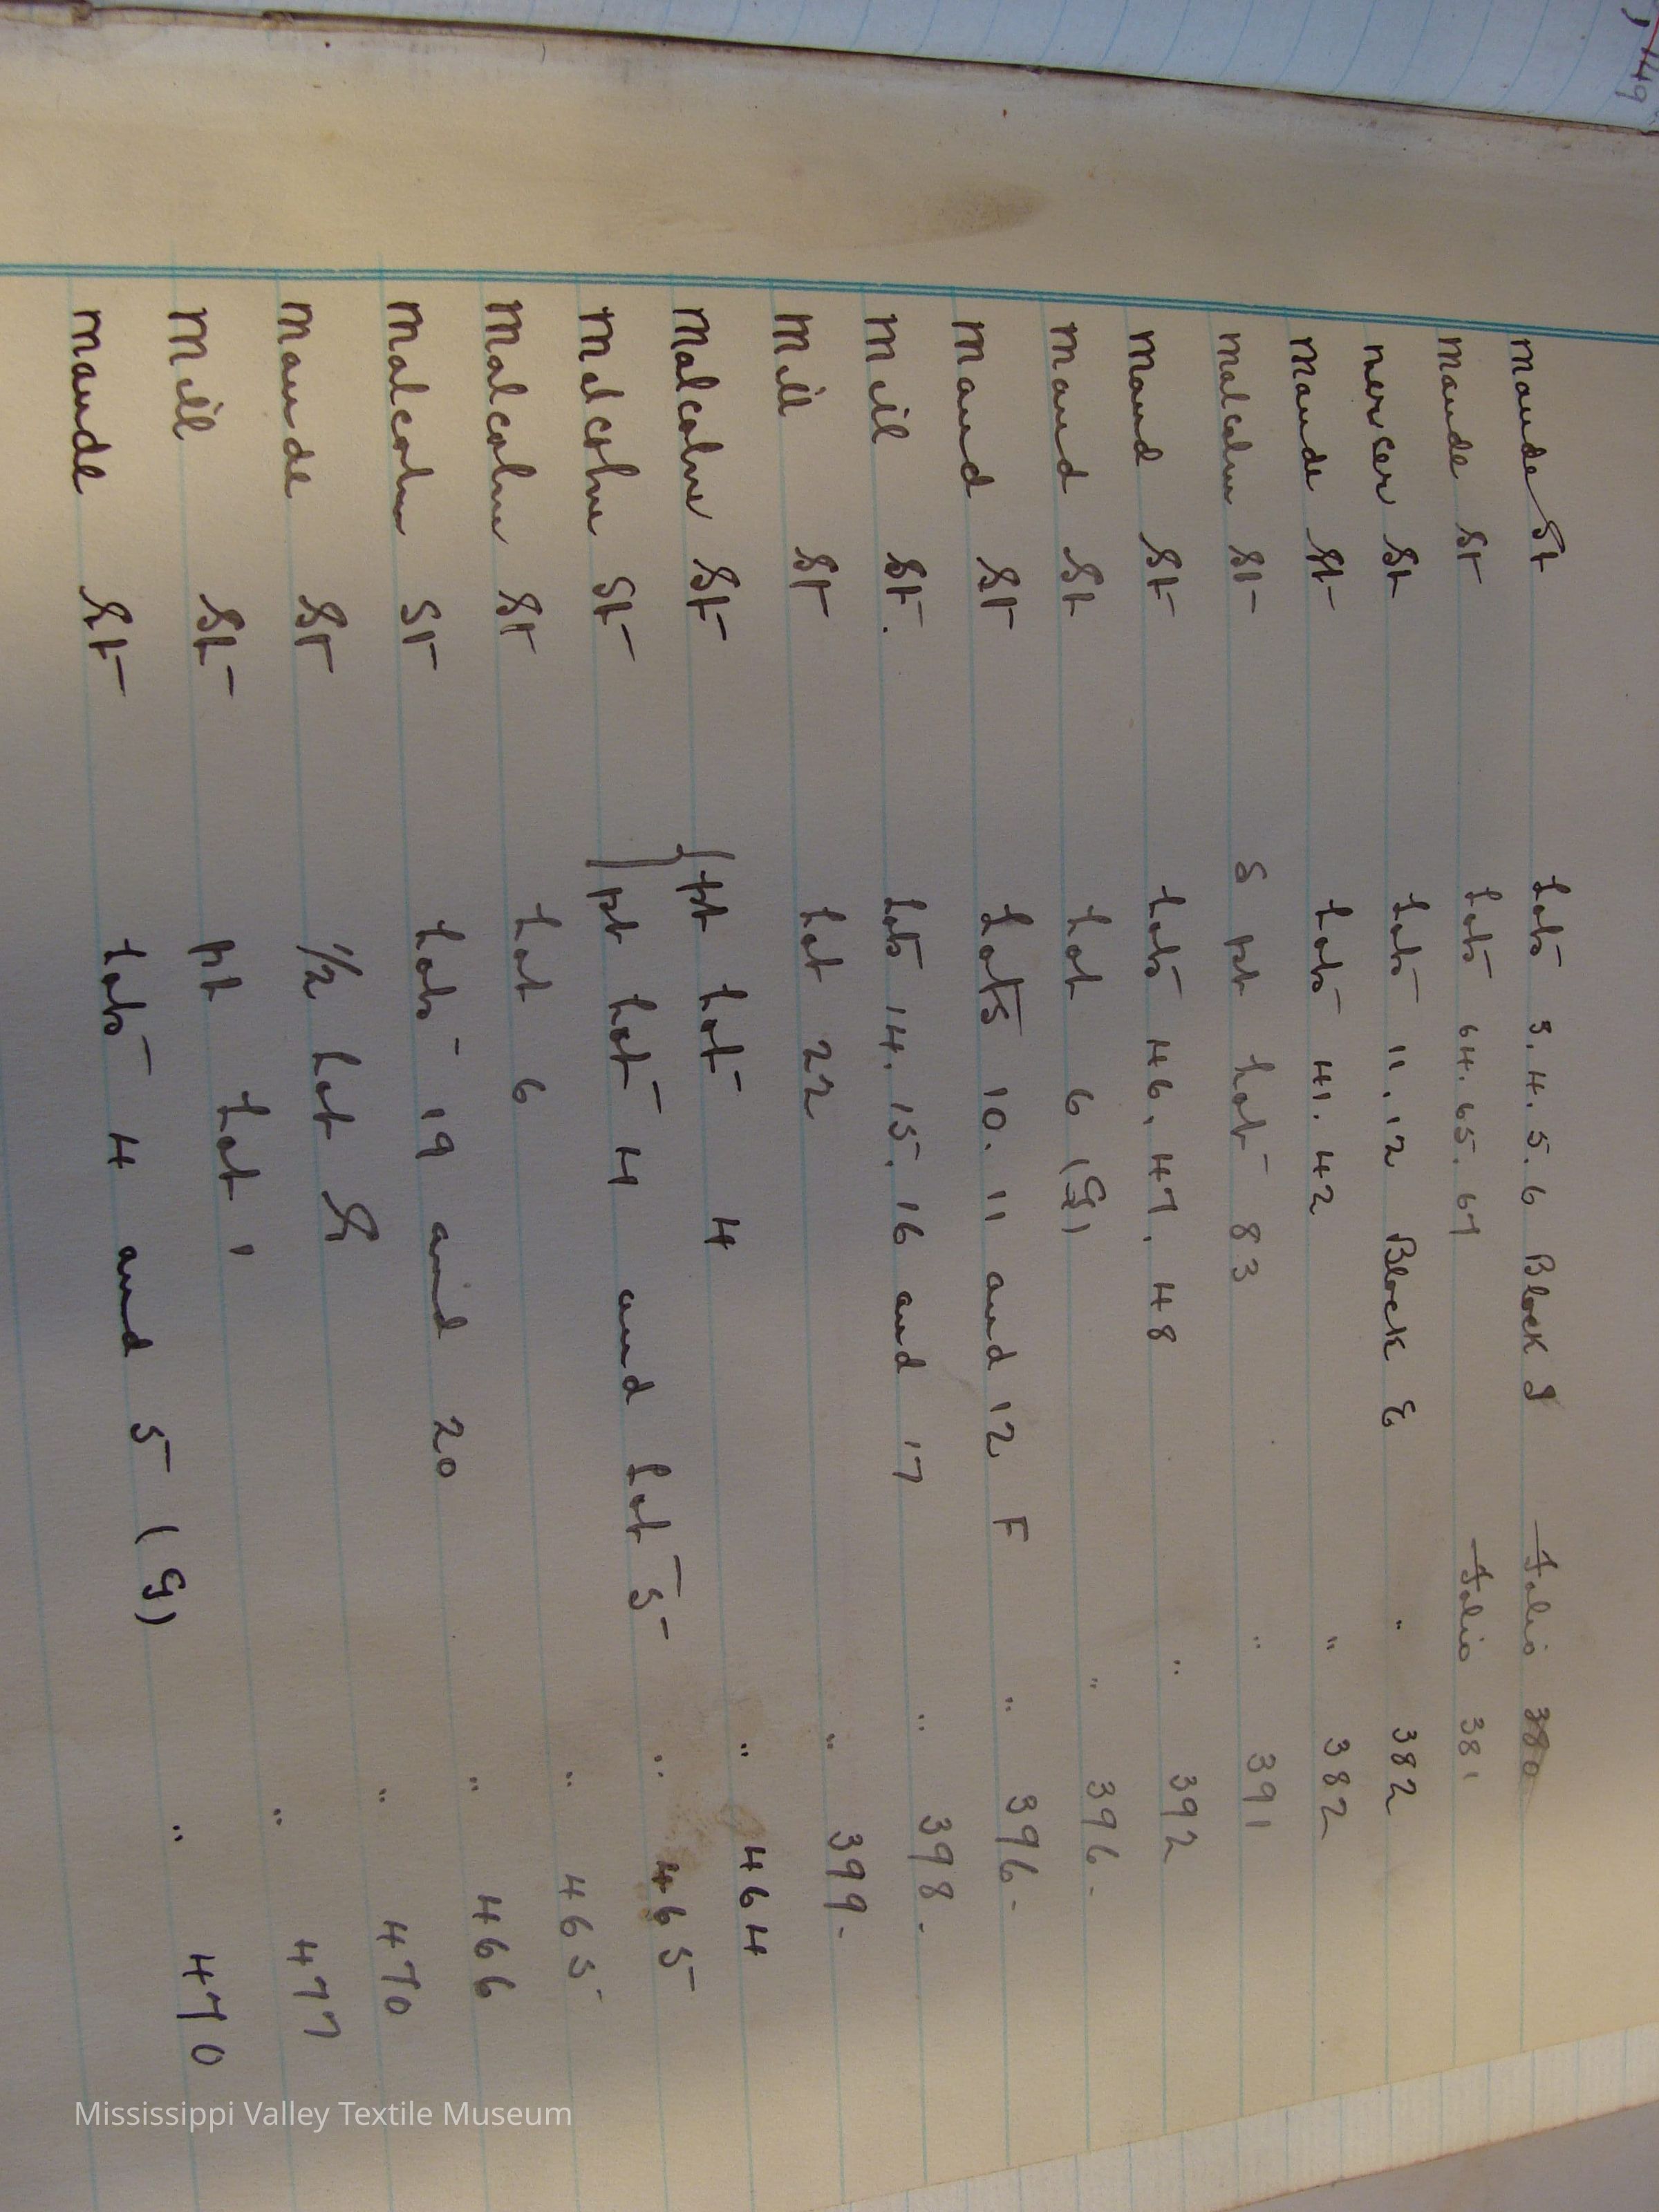 149
Maude St Lots 3.4.5.6 Block 9 Folio 380
Maude St Lots 64.65.67 Folio 381
Mercer St Lots 11.12 Block E " 382
Maude St Lots 41.42 " 382
Malcolm St S pt Lot 83 " 391
Maud St Lots 46.47.48 " 392
Maud St Lot 6 (G) " 396.
Maud St Lots 10. 11 and 12 F " 396.
Mill St. Lots 14. 15. 16 and 17 " 398.
Mill St Lot 22 " 399.
Malcolm St { pt Lot 4 " 464
Malcolm St pt Lot 4 and Lot 5 " 465
Malcolm St Lot 6 " 465
Malcolm St Lots 19 and 20 " 466
Maude St 1/2 Lot " 470
Mill St pt Lot 1 " 477
Maude St Lots 4 and 5 (G) " 470
Mississippi Valley Textile Museum